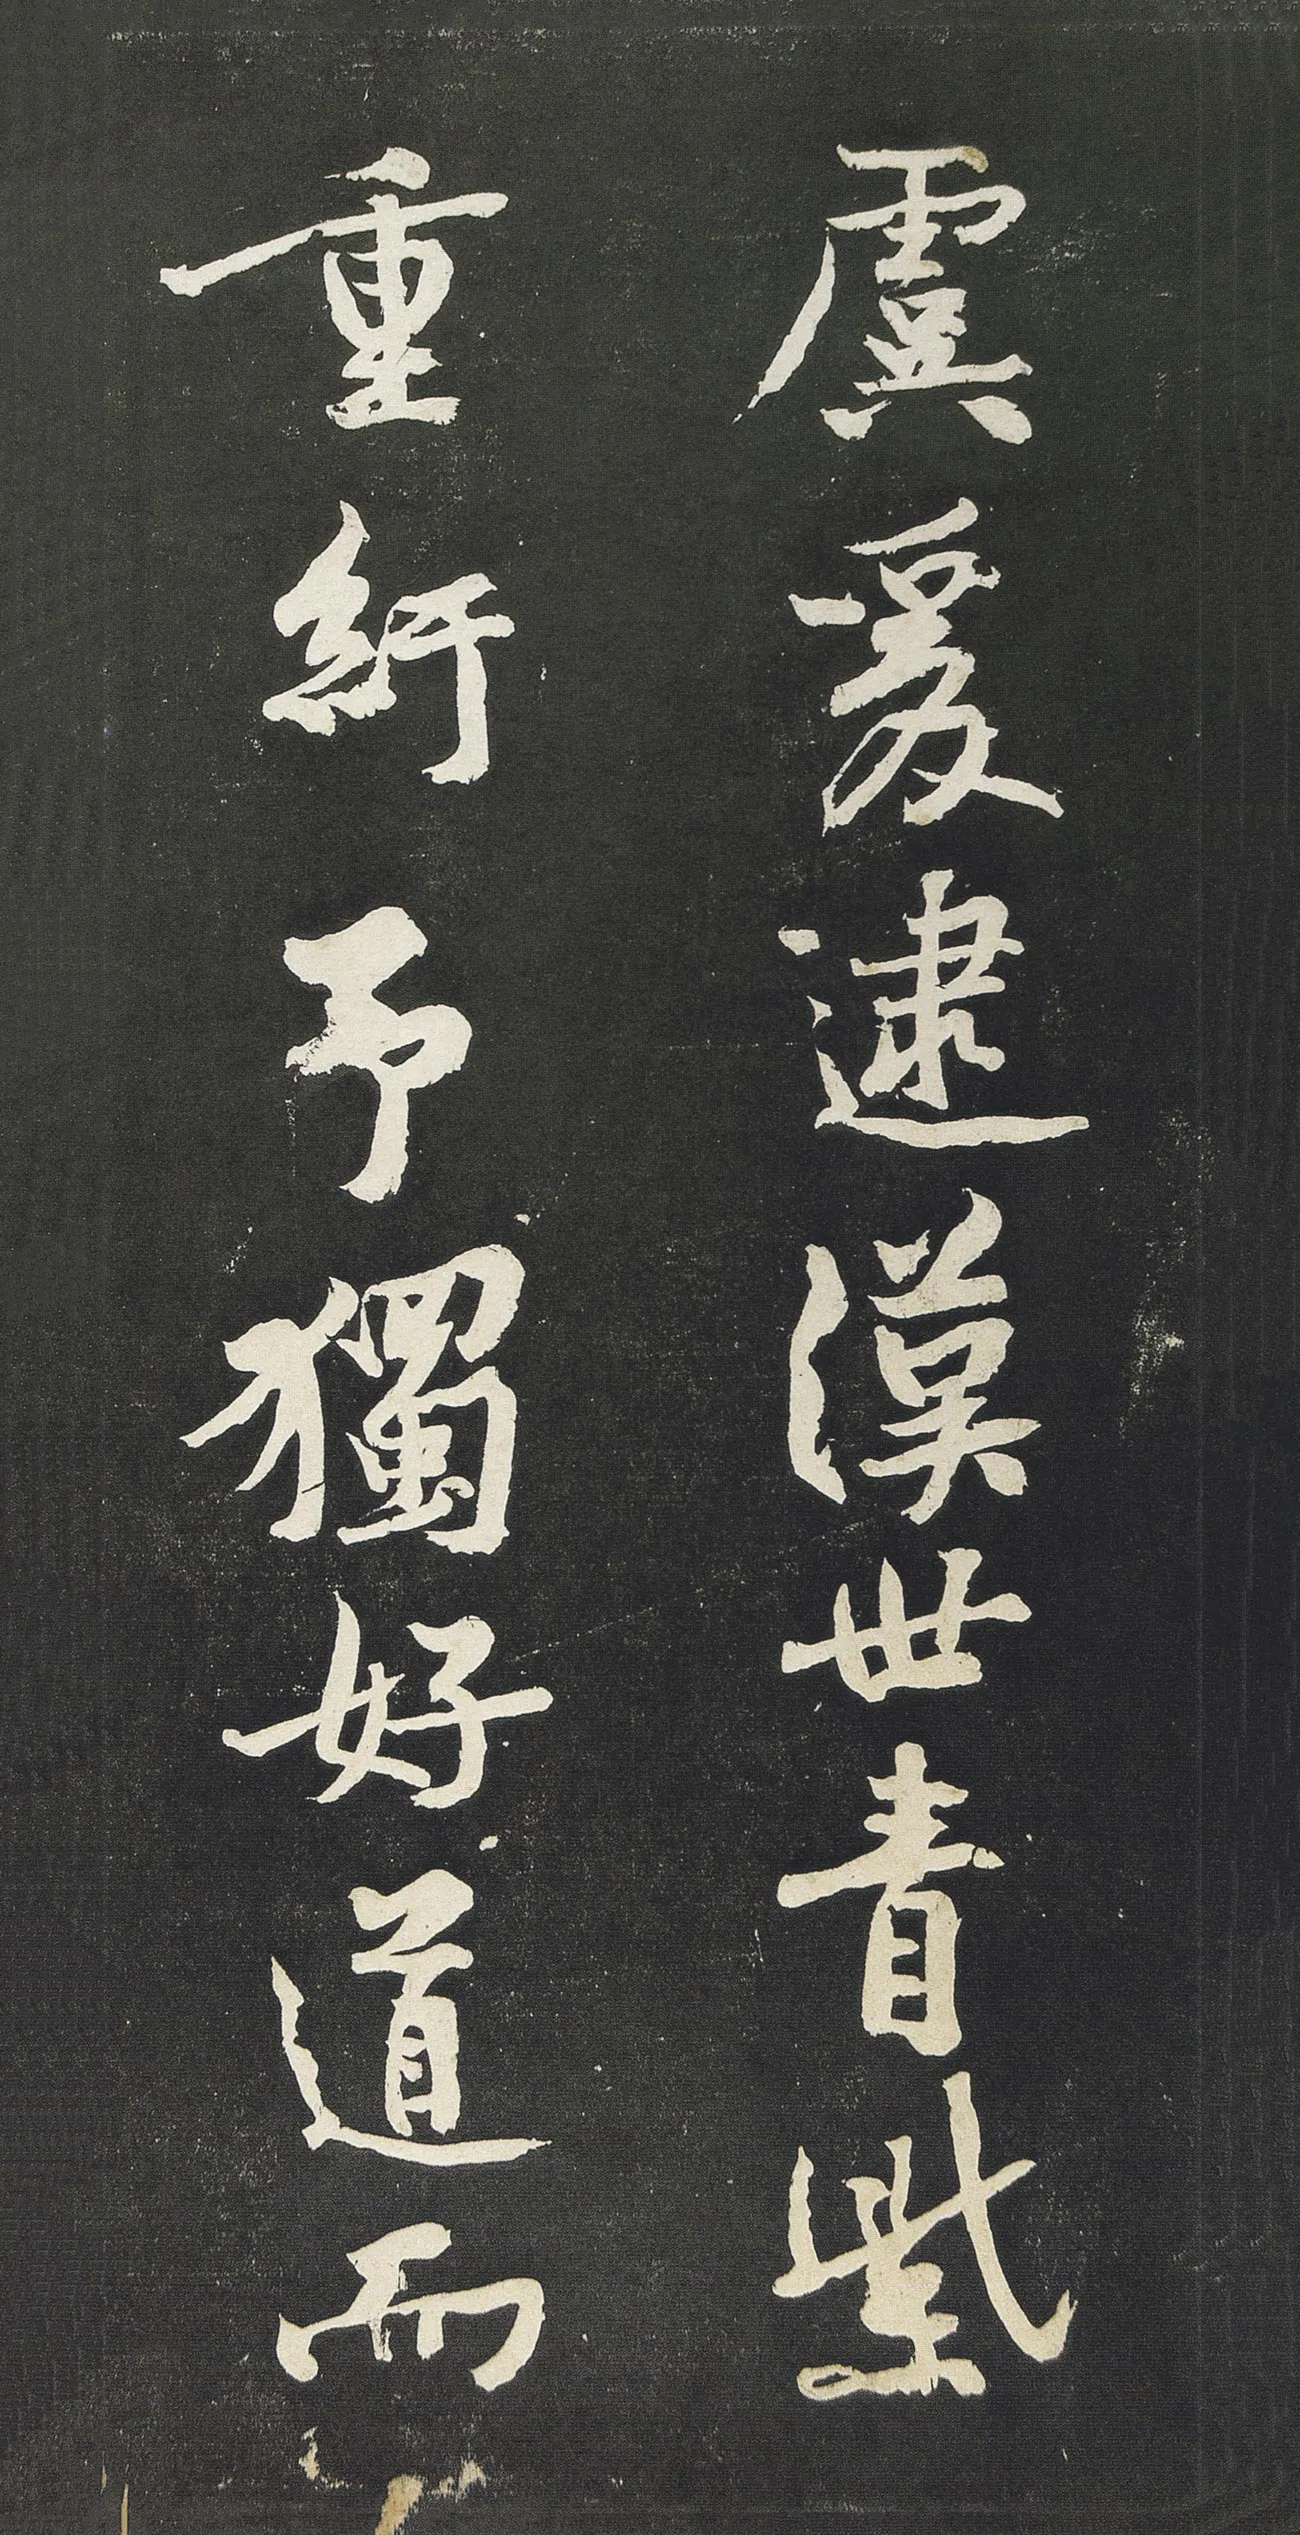 虞爰逮漢世青紫
重紆予獨好道而